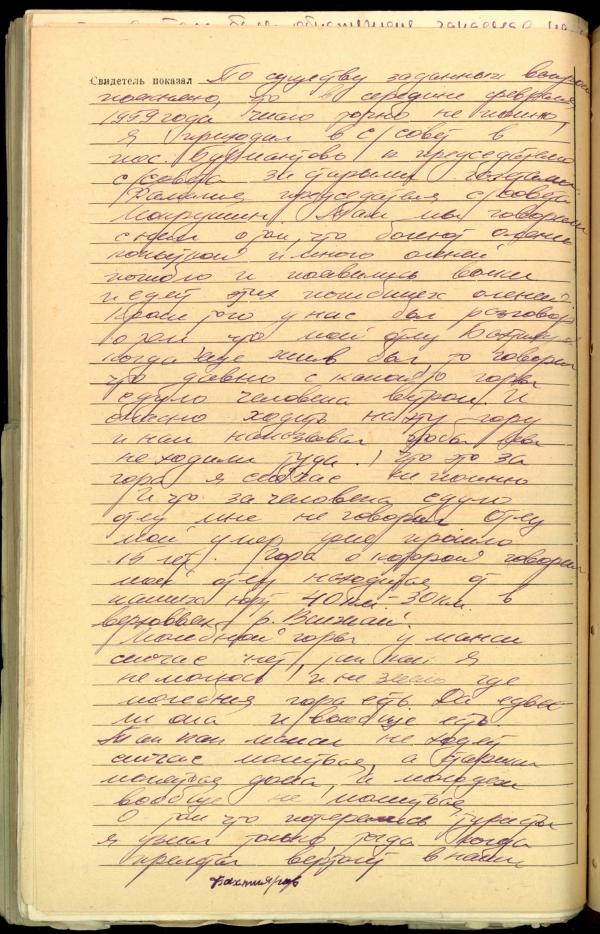 Свидетель показал По существу заданных вопросов
поясняю, что в середине февраля
1959 года число точно не помню,
я приходил в с/совет в
пос. Бурмантово к председателю
с/совета за старыми
Фамилия председателя с/совета
Мокрушин. Там мы говорили
с ним о том, что болеют олени
копыткой и много оленей
погибло и появились волки
и едят этих погибших оленей.
Кроме того у нас был разговор
о том что мой отец Бахтияров
когда еще жив был то говорил
что давно с какой то горы
сдуло человека ветром. И
опасно ходить на эту гору
и нам наказывал чтобы мы
не ходили туда. Что это за
гора я сейчас не помню
И что за человека сдуло
отец мне не говорил. Отец
мой умер уже прошло
15 лет. Гора о которой говорил
мой отец находится от
наших юрт 40 км.-30 км. в
верховьях р. Вижай.
Молебной горы у манси
сейчас нет, так как я
не молюсь и не знаю где
молебная гора есть. Да едва
ли она и вообще есть.
Так как манси не ходят
сейчас молиться, а старики
молятся дома, а молодежь
вообще не молится.
О том что потерялись туристы
я узнал только тогда когда
прилетал вертолет в наши
Бахтияров